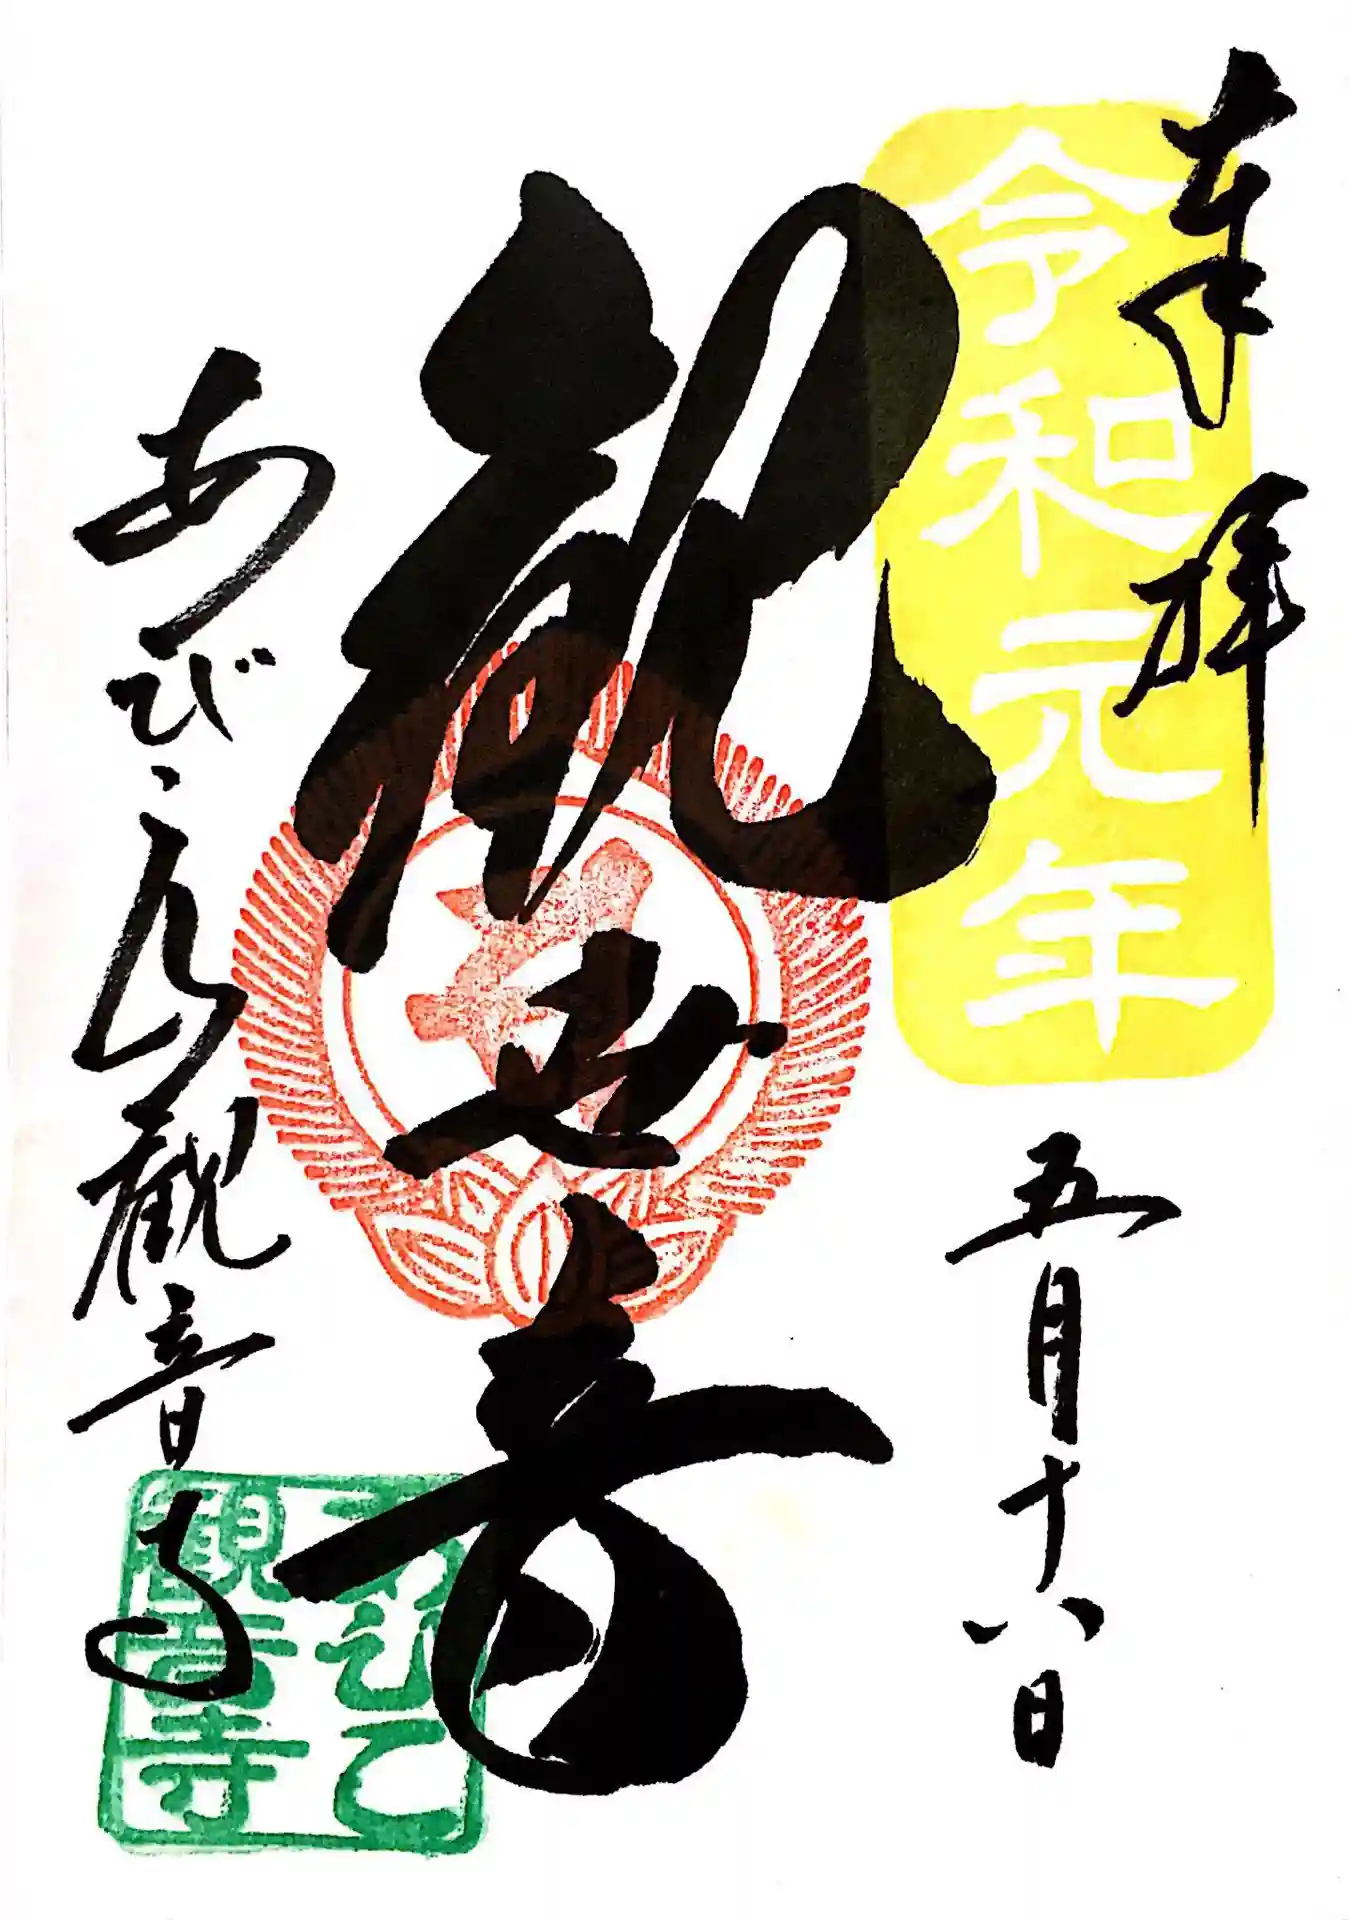 奉拝
令和元年
五月十八日
観世音
あびこ観音寺
あびこ
観音寺